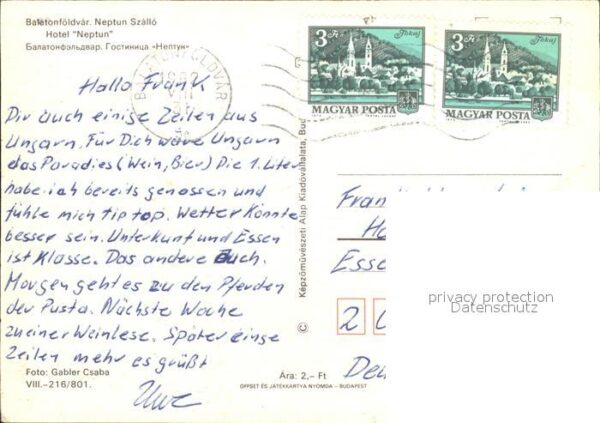 Balatonföldvár. Neptun Szálló
Hotel "Neptun"
Балатонфэльдвар. Гостиница «Нептун»
BALATONFÖLDVÁR
3 Ft Tokaj
MAGYAR POSTA
3 Ft Tokaj
MAGYAR POSTA
Hallo Frank
Dir auch einige Zeilen aus
Ungarn. Für Dich wäre Ungarn
das Paradies (Wein, Bier) Die 1. Liter
habe ich bereits genossen und
fühle mich tip top. Wetter könnte
besser sein. Unterkunft und Essen
ist Klasse. Das andere auch.
Morgen geht es zu den Pferden
der Pusta. Nächste Woche
zu einer Weinlese. Später einige
Zeilen mehr es grüßt
Uwe
Foto: Gabler Csaba
VIII.-216/801.
Ára: 2,- Ft
OFFSET ÉS JÁTÉKKÁRTYA NYOMDA - BUDAPEST
© Képzőművészeti Alap Kiadóvállalata, Bud
Frank
Esse
2
privacy protection
Datenschutz